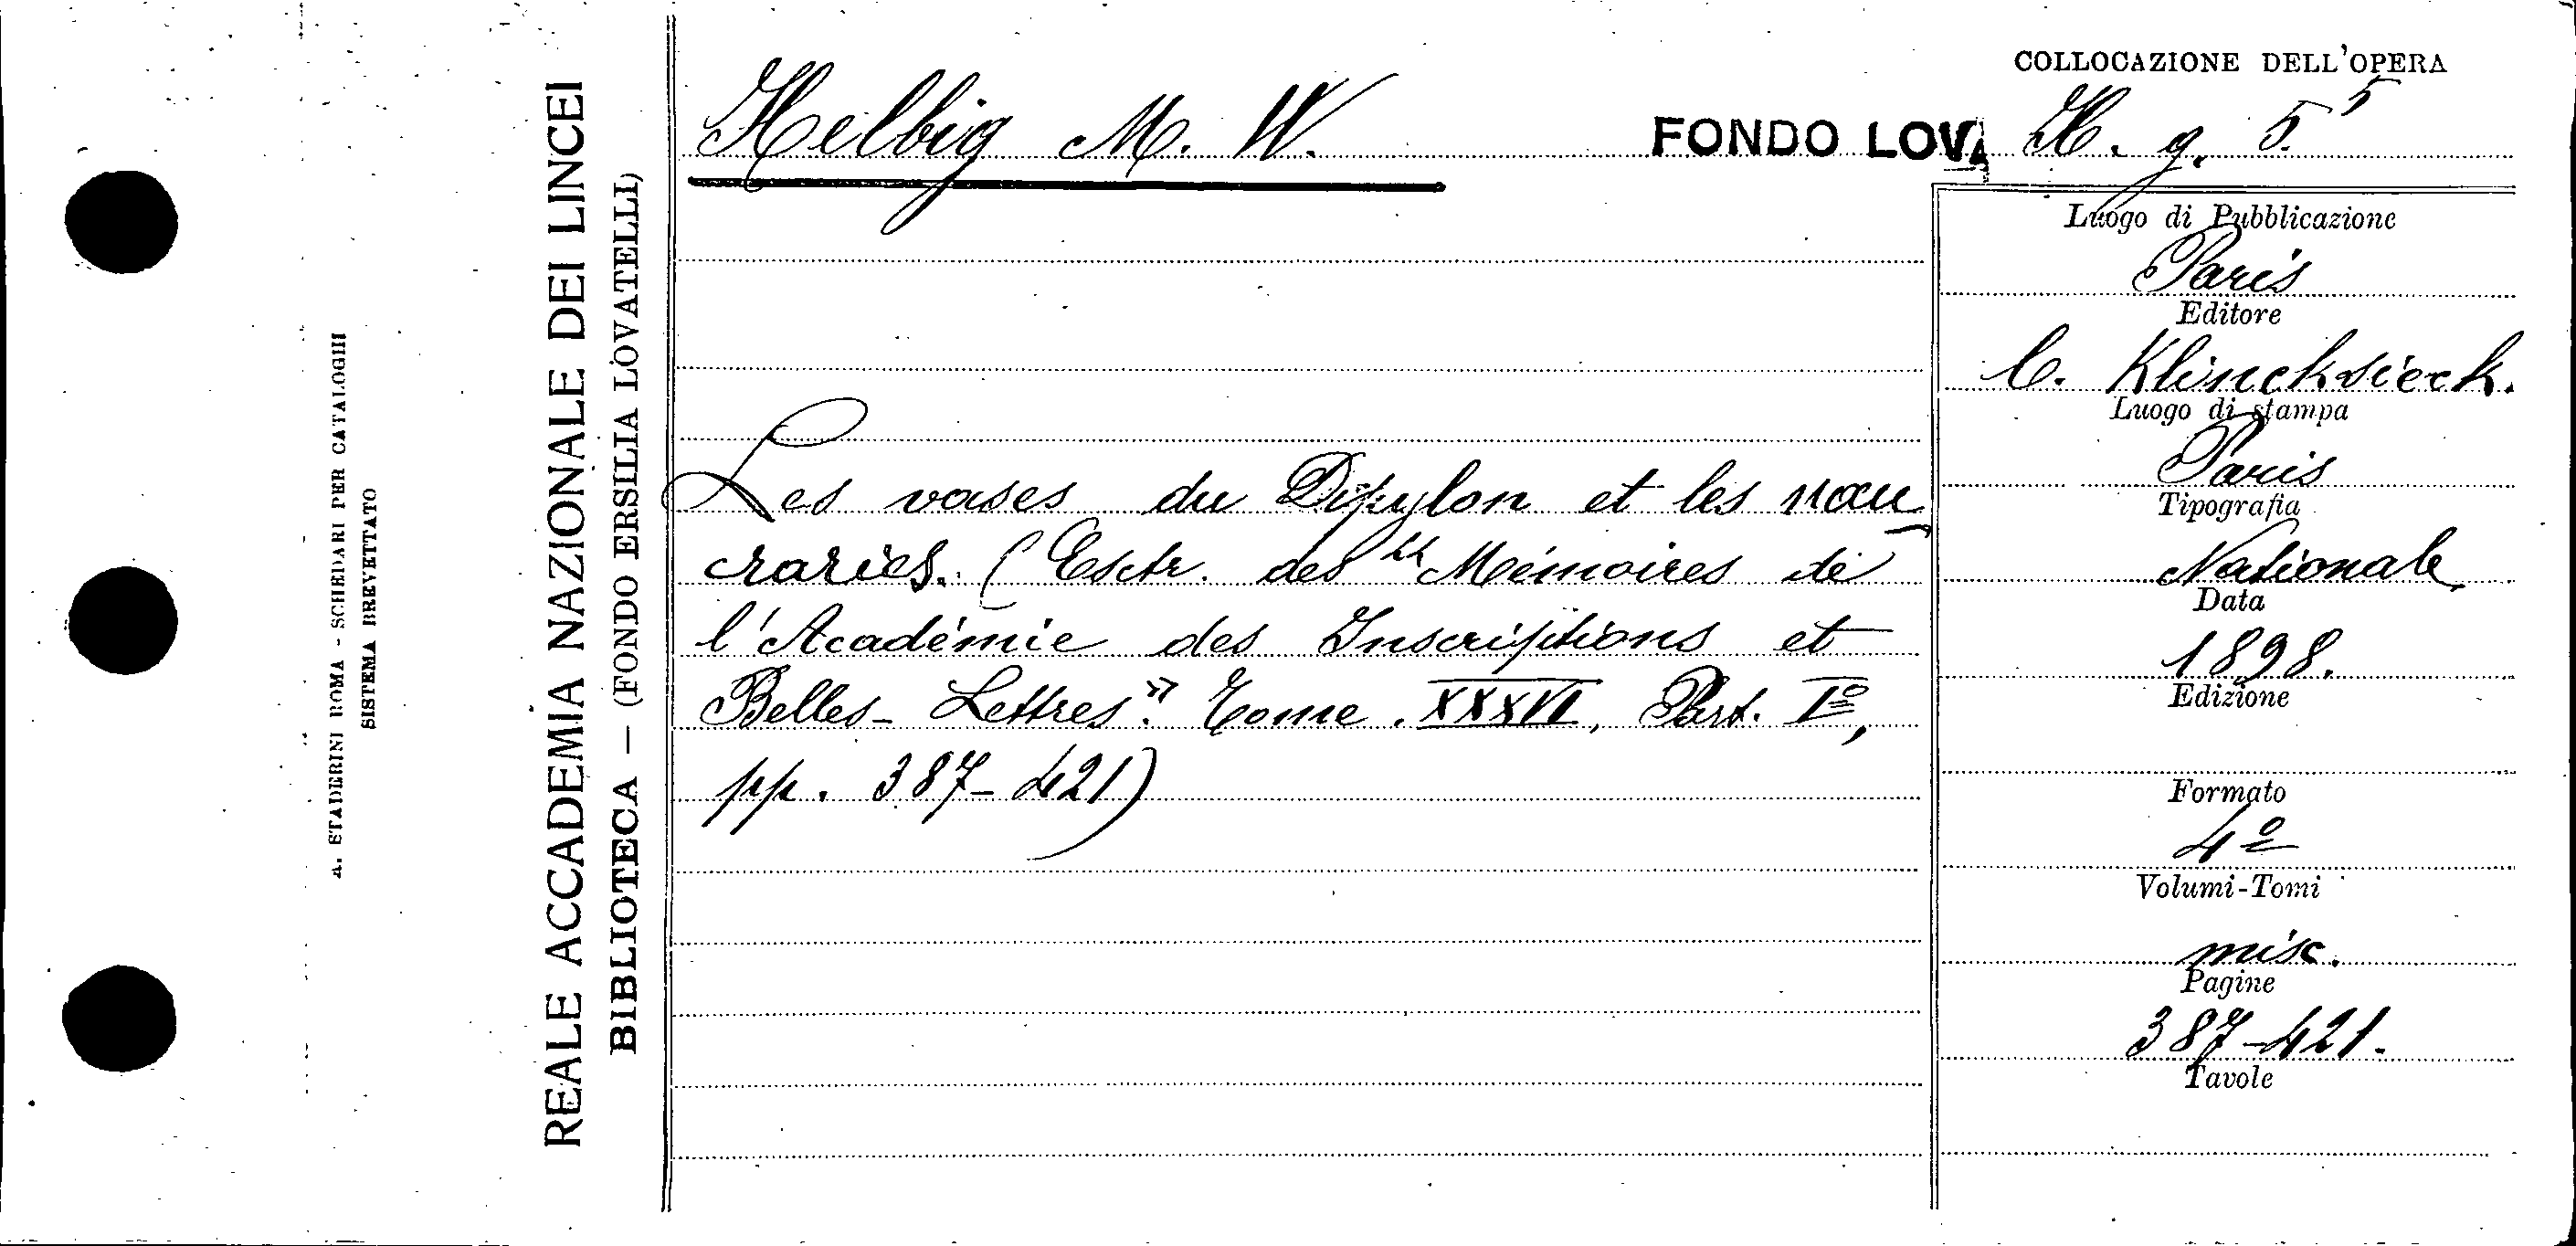 COLLOCAZIONE DELL'OPERA
Helbig M. W.
FONDO LOV. H. g. 5.5
Les vases du Dipylon et les nau
craries. (Estr. des "Mémoires de
l'Académie des Inscriptions et
Belles-Lettres". Tome XXXVI, Part. Iº,
pp. 387-421)
Luogo di Pubblicazione
Paris
Editore
C. Klincksieck.
Luogo di stampa
Paris
Tipografia
Nationale
Data
1898.
Edizione
Formato
4º
Volumi-Tomi
misc.
Pagine
387-421.
Tavole
REALE ACCADEMIA NAZIONALE DEI LINCEI
BIBLIOTECA — (FONDO ERSILIA LOVATELLI)
A. STADERINI ROMA - SCHEDARI PER CATALOGHI
SISTEMA BREVETTATO